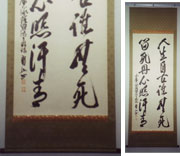 古誰無死
心照汗青
人生自古誰無死
留取丹心照汗青